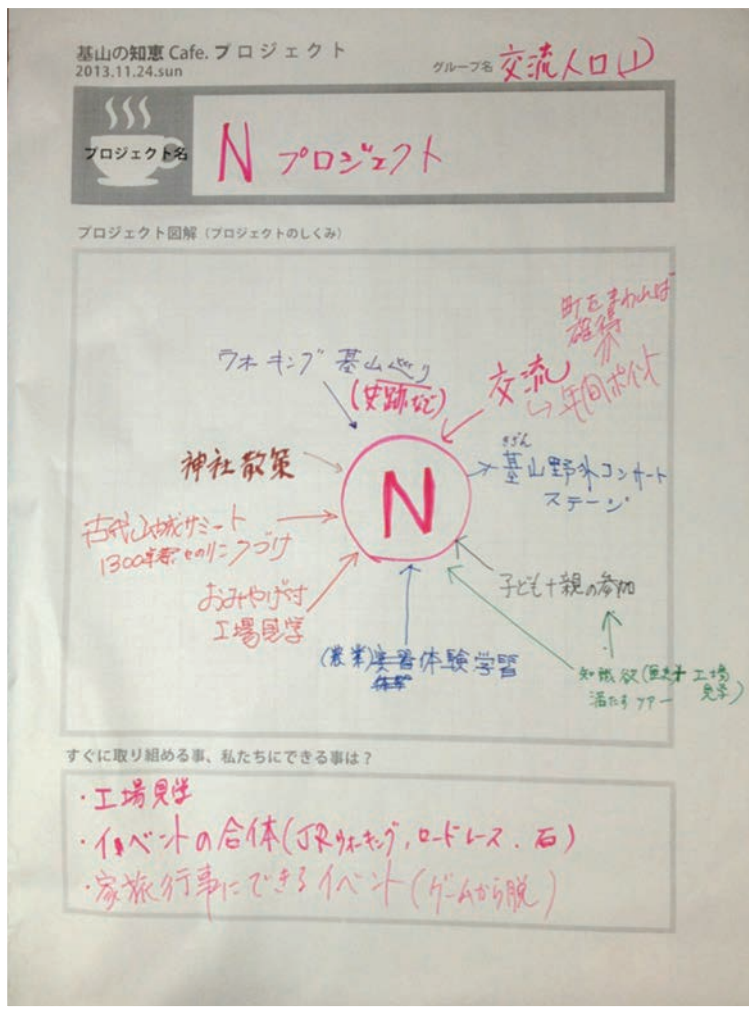 基山の知恵 Cafe. プロジェクト
2013.11.24.sun
グループ名 交流人口①
プロジェクト名
N プロジェクト
プロジェクト図解（プロジェクトのしくみ）
町をまわれば
確得
ウオーキング 基山巡り
(史跡など)
交流
↳ 年間ポイント
神社散策
きざん
基山野外コンサート
ステージ
N
古代山城サミート
1300年祭
おみやげ付
工場見学
子ども+親の参加
(農業)体験学習
知識欲( 工場
見学)
満たすツアー
すぐに取り組める事、私たちにできる事は？
・工場見学
・イベントの合体(JRウォーキング, ロードレース、石)
・家族行事にできるイベント(ゲームから脱)